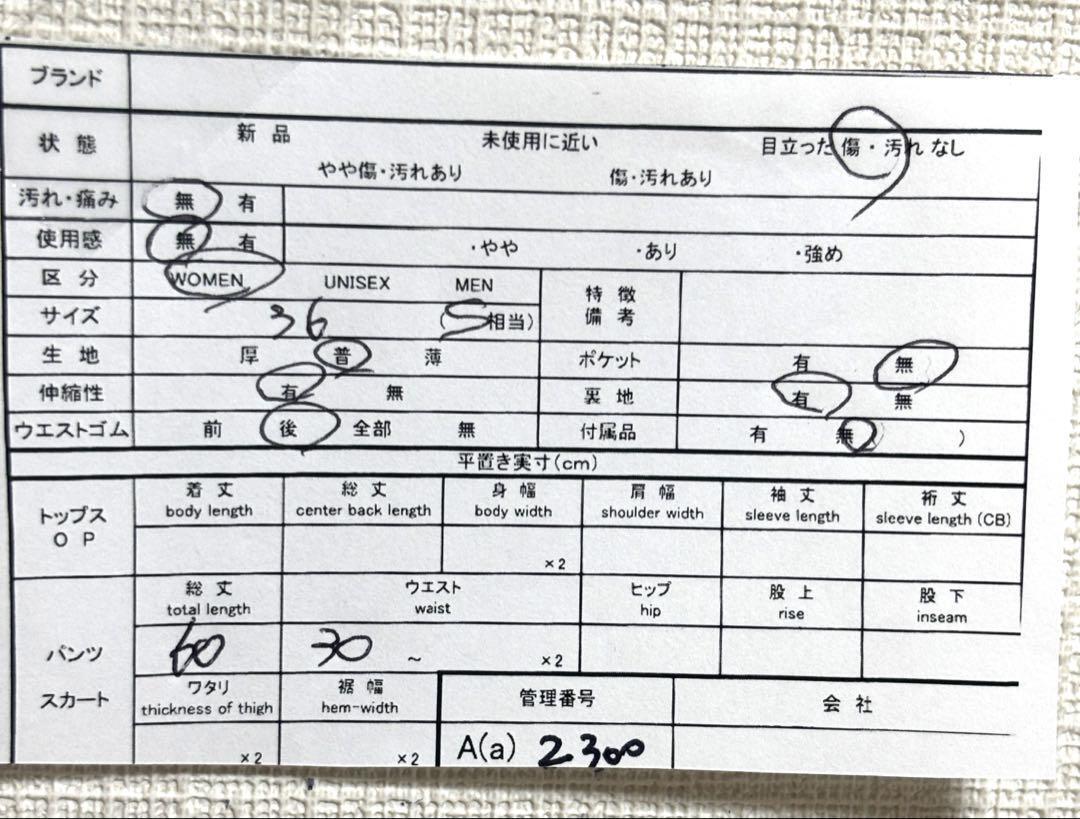 ブランド
状態 新品 未使用に近い 目立った傷・汚れなし
やや傷・汚れあり 傷・汚れあり
汚れ・痛み 無 有
使用感 無 有 ・やや ・あり ・強め
区分 WOMEN UNISEX MEN 特徴備考
サイズ 36 (S相当)
生地 厚 普 薄 ポケット 有 無
伸縮性 有 無 裏地 有 無
ウエストゴム 前 後 全部 無 付属品 有 無( )
平置き実寸(cm)
トップス OP 着丈 総丈 身幅 肩幅 袖丈 裄丈
body length center back length body width shoulder width sleeve length sleeve length (CB)
×2
パンツ スカート 総丈 ウエスト ヒップ 股上 股下
total length waist hip rise inseam
60 30 ~ ×2
ワタリ 裾幅 管理番号 会社
thickness of thigh hem-width
×2 ×2 A(a) 2300